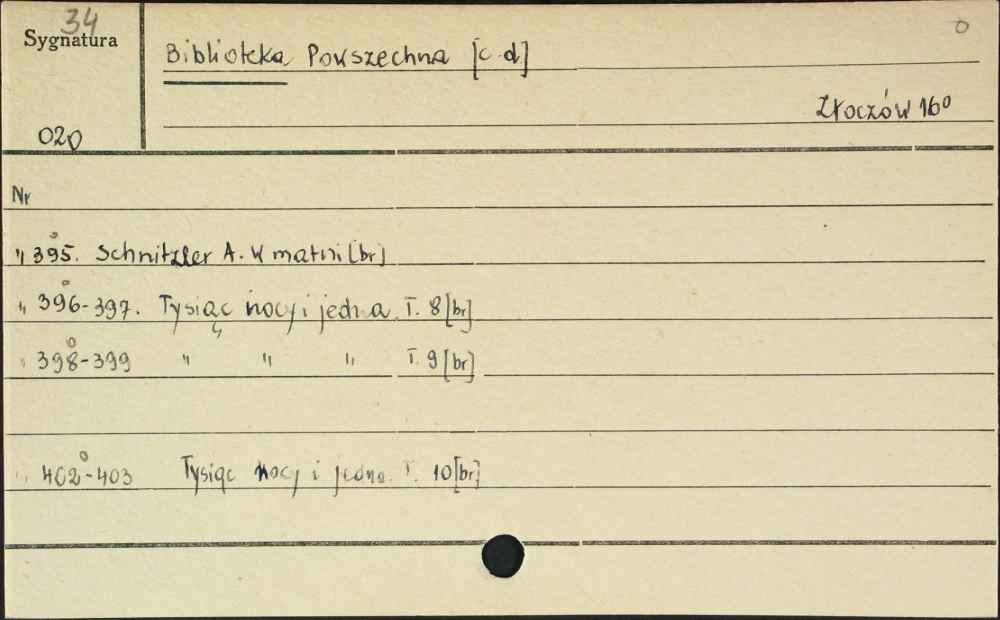 34
Sygnatura
0
Biblioteka Powszechna [c.d]
Złoczów 16°
020
Nr
" 395. Schnitzler A. W matni [br]
" 396-397. Tysiąc nocy i jedna. T. 8 [br]
" 398-399 " " " T. 9 [br]
" 402-403 Tysiąc nocy i jedna. T. 10 [br]